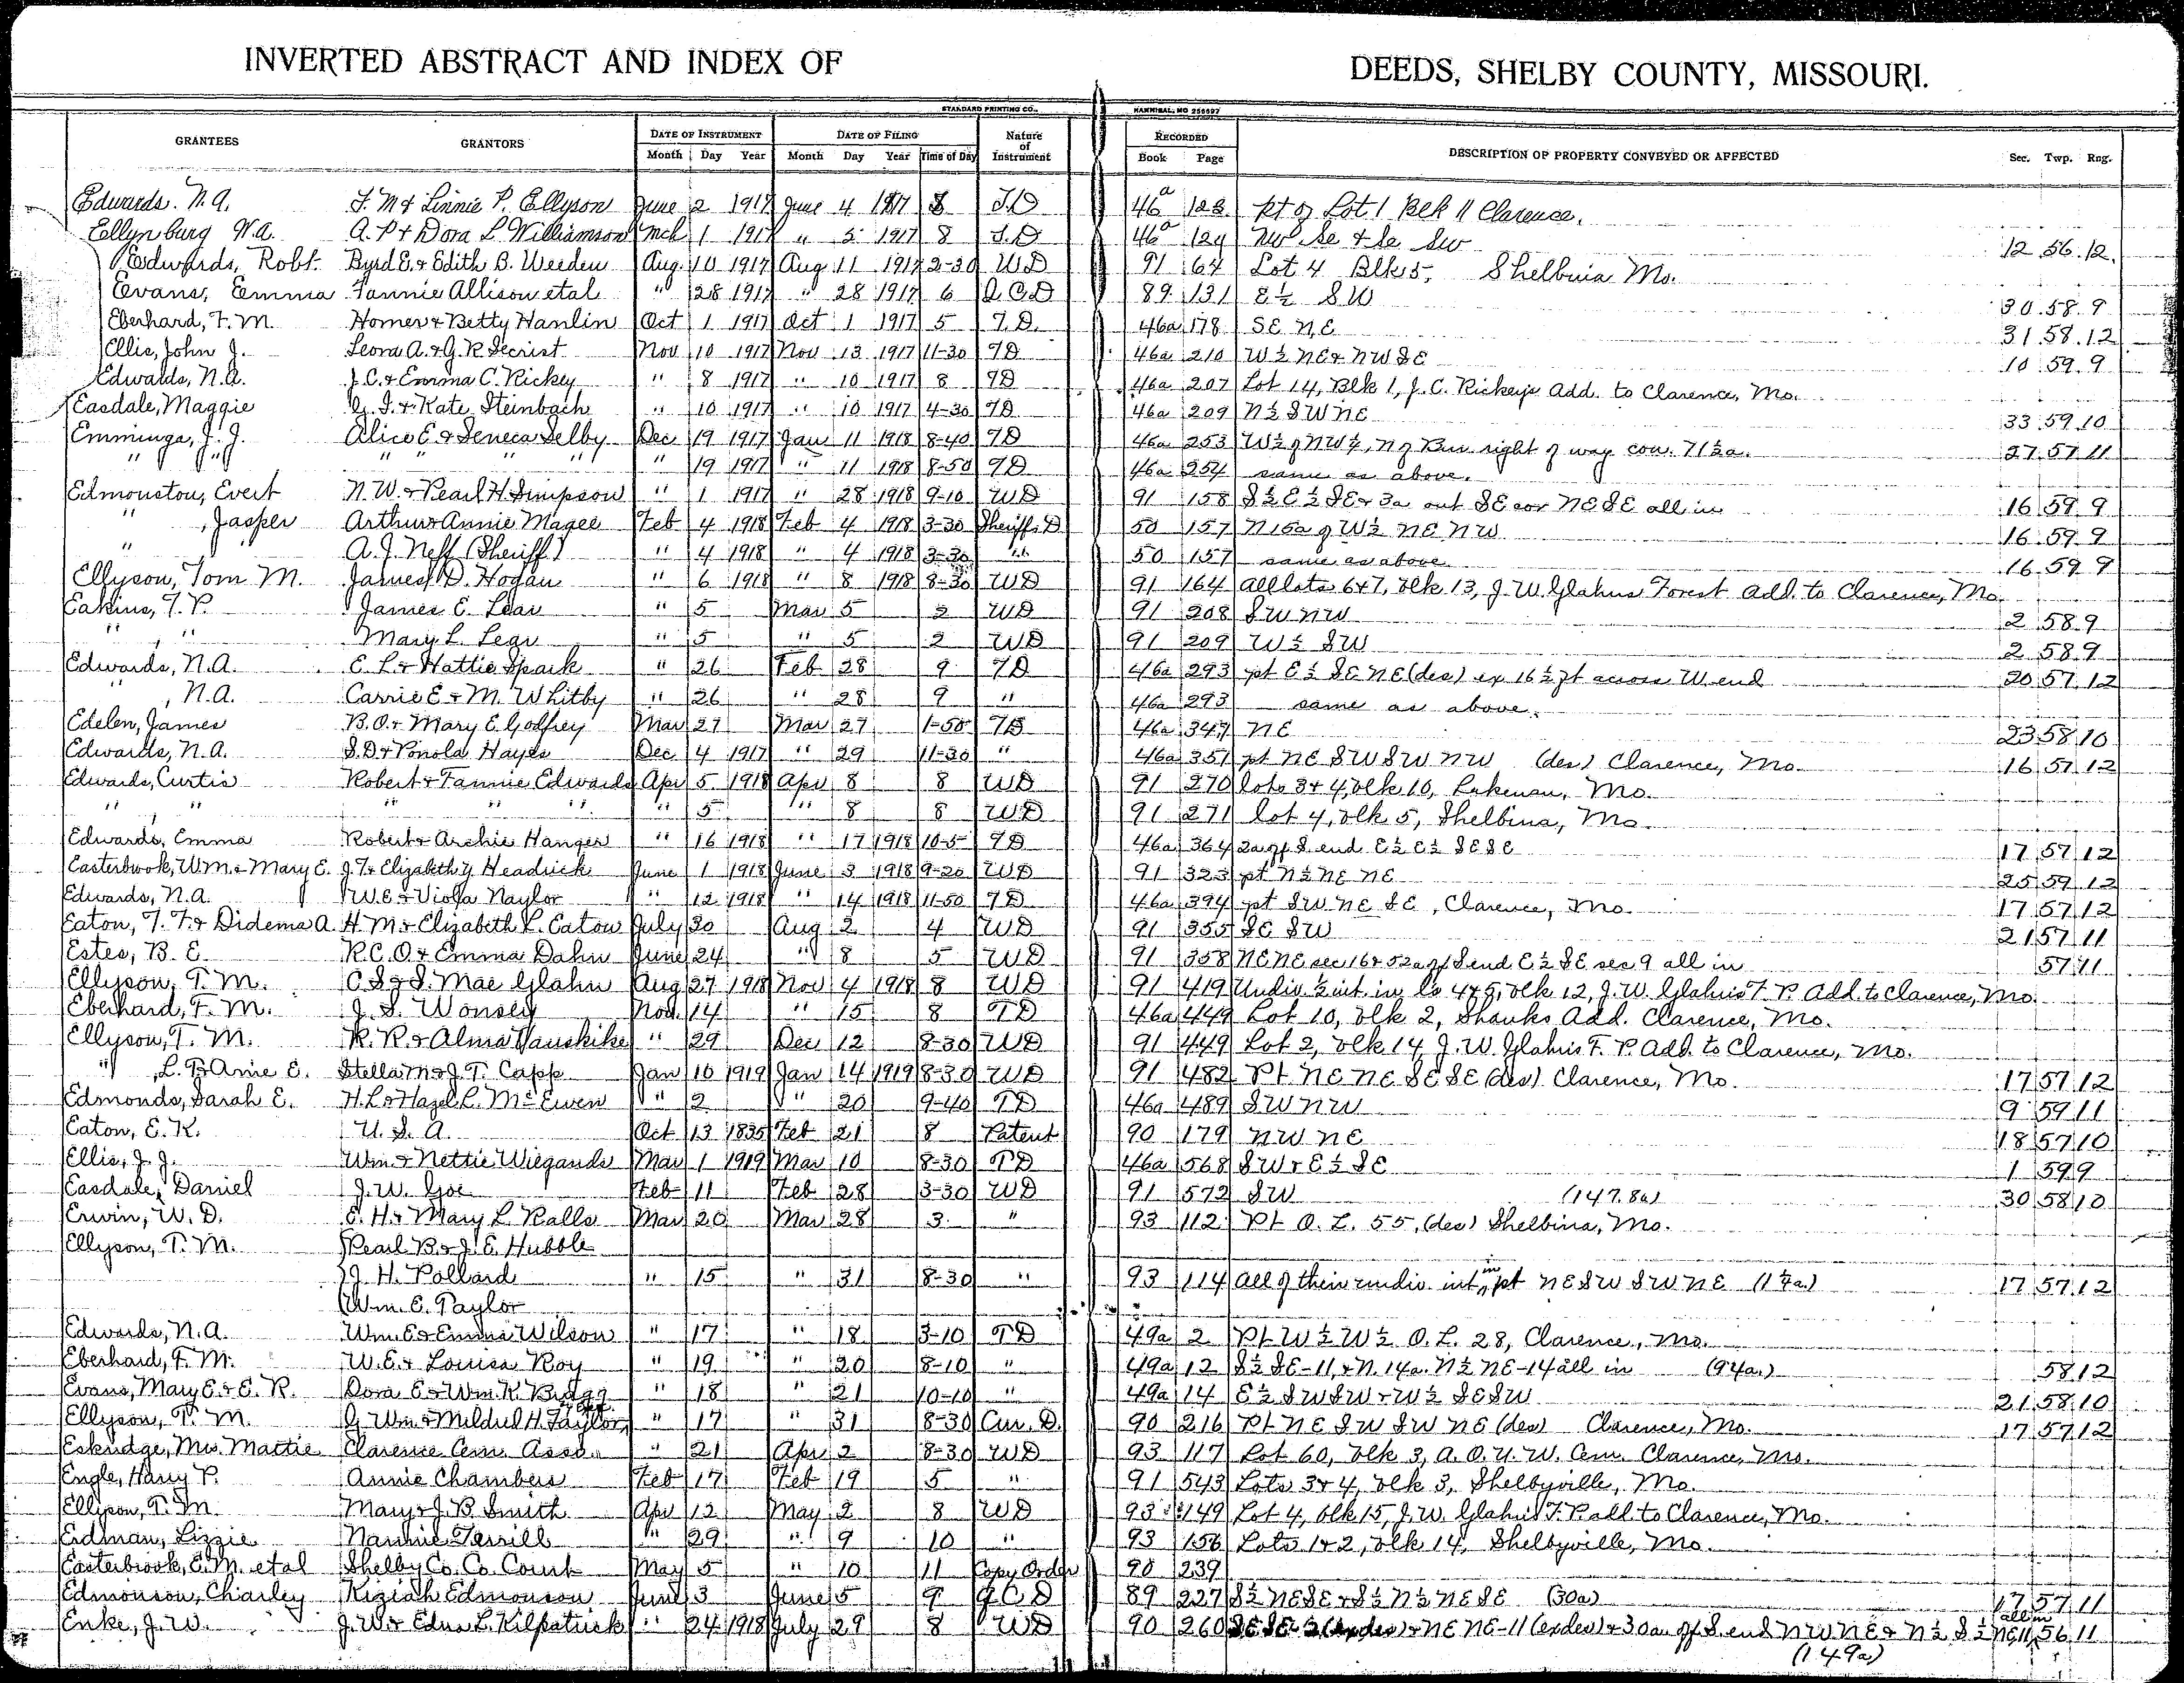 INVERTED ABSTRACT AND INDEX OF DEEDS, SHELBY COUNTY, MISSOURI.
STANDARD PRINTING CO., HANNIBAL, MO
GRANTEES GRANTORS DATE OF INSTRUMENT DATE OF FILING Nature of Instrument RECORDED DESCRIPTION OF PROPERTY CONVEYED OR AFFECTED Sec. Twp. Rng.
Month Day Year Month Day Year Time of Day Book Page
Edwards. N.A. T. M & Linnie P. Ellyson June 2 1917 June 4 1917 8 T.D 46a 123 pt of Lot 1 Blk 11 Clarence.
Ellynburg W.a. A. P & Dora L. Williamson Mch 1 1917 " 5 1917 8 T.D 46a 124 NW Se & Se SW 12 56 12
Edwards, Robt. Byrd E. & Edith B. Weeden Aug. 10 1917 Aug 11 1917 2-30 WD 91 64 Lot 4 Blk 5, Shelbina Mo.
Evans, Emma Fannie Allison etal " 28 1917 " 28 1917 6 Q.C.D 89 131 E½ SW 30 58 9
Eberhard, F. M. Homer & Betty Hanlin Oct 1 1917 Oct 1 1917 5 T.D. 46a 178 SE NE 31 58 12
Ellis, John J. Leora A. & G. R Secrist Nov 10 1917 Nov 13 1917 11-30 TD 46a 210 W½ NE & NW SE 10 59 9
Edwards, N.a. J. C. & Emma C. Rickey " 8 1917 " 10 1917 8 TD 46a 207 Lot 14, Blk 1, J. C. Rickeys Add. to Clarence, Mo.
Easdale, Maggie G. I. & Kate Steinbach " 10 1917 " 10 1917 4-30 TD 46a 209 N½ SW NE 33 59 10
Emminga, J. J. Alice E. & Seneca Selby Dec 19 1917 Jan 11 1918 8-40 TD 46a 253 W½ of NW¼, N of Run right of way con. 71½a. 27 57 11
" " " " " " 19 1917 " 11 1918 8-50 TD 46a 254 same as above.
Edmonston, Evert N. W. & Pearl H. Simpson " 1 1917 " 28 1918 9-10 WD 91 158 S½ E½ SE & 3a out SE cor NE SE all in 16 59 9
" , Jasper Arthur & Annie Magee Feb 4 1918 Feb 4 1918 3-30 Sheriffs D 50 157 N 15a of W½ NE NW 16 59 9
" A. J. Neff (Sheriff) " 4 1918 " 4 1918 3-30 " 50 157 same as above 16 59 9
Ellyson, Tom M. James D. Hogan " 6 1918 " 8 1918 8-30 WD 91 164 all lots 6 & 7, blk 13, J. W. Glahns Forest Add. to Clarence, Mo.
Eakins, T. P. James E. Lear " 5 Mar 5 2 WD 91 208 SW NW 2 58 9
" " Mary L. Lear " 5 " 5 2 WD 91 209 W½ SW 2 58 9
Edwards, N.A. E. L. & Hattie Spark " 26 Feb 28 9 TD 46a 293 pt E½ SE NE (des) ex 16½ ft across W end 20 57 12
" , N.A. Carrie E & M. Whitby " 26 " 28 9 " 46a 293 same as above.
Edelen, James B. O. & Mary E. Godfrey Mar 27 Mar 27 1-50 TD 46a 347 NE 23 58 10
Edwards, N.A. S. D & Ponola Hayes Dec 4 1917 " 29 11-30 " 46a 351 pt NE SW SW NW (des) Clarence, Mo. 16 57 12
Edwards, Curtis Robert & Fannie Edwards Apr 5 1918 Apr 8 8 WD 91 270 lots 3 & 4, blk 10, Lakenan, Mo.
" " " " " " 5 " 8 8 WD 91 271 lot 4, blk 5, Shelbina, Mo.
Edwards, Emma Robert & Archie Hanger " 16 1918 " 17 1918 10-5 TD 46a 364 2a off S. end E½ E½ SE SE 17 57 12
Easterbrook, Wm. & Mary E. J. T. & Elizabeth Y. Headrick June 1 1918 June 3 1918 9-20 WD 91 323 pt N½ NE NE 25 59 12
Edwards, N.A. W.E. & Viola Naylor " 12 1918 " 14 1918 11-50 TD 46a 394 pt SW NE SE, Clarence, Mo. 17 57 12
Eaton, T. F. & Didema A. H. M. & Elizabeth L. Eaton July 30 Aug 2 4 WD 91 355 SE SW 21 57 11
Estes, B. E. R. C. O. & Emma Dahn June 24 " 8 5 WD 91 358 NE NE sec 16 & 52a off S end E½ SE sec 9 all in 57 11
Ellyson, T. M. C. S. & S. Mae Glahn Aug 27 1918 Nov 4 1918 8 WD 91 419 Undiv. ½ int. in ls 4 & 5, blk 12, J. W. Glahns F. P. Add. to Clarence, Mo.
Eberhard, F. M. J. S. Wonsly Nov. 14 " 15 8 TD 46a 449 Lot 10, blk 2, Shanks Add. Clarence, Mo.
Ellyson, T. M. R. R. & Alma Vanskike " 29 Dec 12 8-30 WD 91 449 Lot 2, blk 14 J. W. Glahns F. P. Add. to Clarence, Mo.
" , L. T. & Amie E. Stella M & J. T. Capp Jan 10 1919 Jan 14 1919 8-30 WD 91 482 Pt. NE NE SE SE (des) Clarence, Mo. 17 57 12
Edmonds, Sarah E. H. L. & Hazel L. McEwen " 2 " 20 9-40 TD 46a 489 SW NW 9 59 11
Eaton, E. K. U. S. A. Oct 13 1835 Feb 21 8 Patent 90 179 NW NE 18 57 10
Ellis, J. J. Wm. & Nettie Wiegands Mar 1 1919 Mar 10 8-30 TD 46a 568 SW & E½ SE 1 59 9
Easdale, Daniel J. W. Goe Feb 11 Feb 28 3-30 WD 91 572 SW (147.8a) 30 58 10
Erwin, W. D. E. H. & Mary L. Ralls Mar 20 Mar 28 3 " 93 112 Pt O. L. 55, (des) Shelbina, Mo.
Ellyson, T. M. Pearl B. & J. E. Hubble
J. H. Pollard " 15 " 31 8-30 " 93 114 all of their undiv. int. in pt NE SW SW NE (1¼a.) 17 57 12
Wm. E. Taylor
Edwards, N.A. Wm. E & Emma Wilson " 17 " 18 3-10 TD 49a 2 Pt W½ W½ O. L. 28, Clarence, Mo.
Eberhard, F. M. W. E. & Louisa Roy " 19 " 20 8-10 " 49a 12 S½ SE-11, & N. 14a. N½ NE-14 all in (94a.) 58 12
Evans, Mary E & E. R. Dora E. & Wm. K. Bragg " 18 " 21 10-10 " 49a 14 E½ SW SW & W½ SE SW 21 58 10
Ellyson, T. M. G. Wm. & Mildred H. Taylor " 17 " 31 8-30 Cur. D. 90 216 Pt NE SW SW NE (des) Clarence, Mo. 17 57 12
Eskridge, Mrs. Mattie Clarence Cem. Assn. " 21 Apr 2 8-30 WD 93 117 Lot 60, blk 3, A. O. U. W. Cem. Clarence, Mo.
Engle, Harry P. Annie Chambers Feb 17 Feb 19 5 " 91 543 Lots 3 & 4, blk 3, Shelbyville, Mo.
Ellyson, T. M. Mary & J. B Smith Apr 12 May 2 8 WD 93 149 Lot 4, blk 15, J. W. Glahns F. P. add. to Clarence, Mo.
Erdman, Lizzie Nannie Terrill " 29 " 9 10 " 93 156 Lots 1 & 2, blk 14, Shelbyville, Mo.
Easterbrook, E. M. etal Shelby Co. Co. Court May 5 " 10 11 Copy Order 90 239
Edmonson, Charley Kiziah Edmonson June 3 June 5 9 Q C D 89 227 S½ NE SE & S½ N½ NE SE (30a) 17 57 11
Enke, J. W. J. W. & Edna L. Kilpatrick " 24 1918 July 29 8 WD 90 260 SE SE-2 (ex des) & NE NE-11 (ex des) & 30a. off S. end NW NE & N½ S½ NE 11, all in 56 11
(149a)